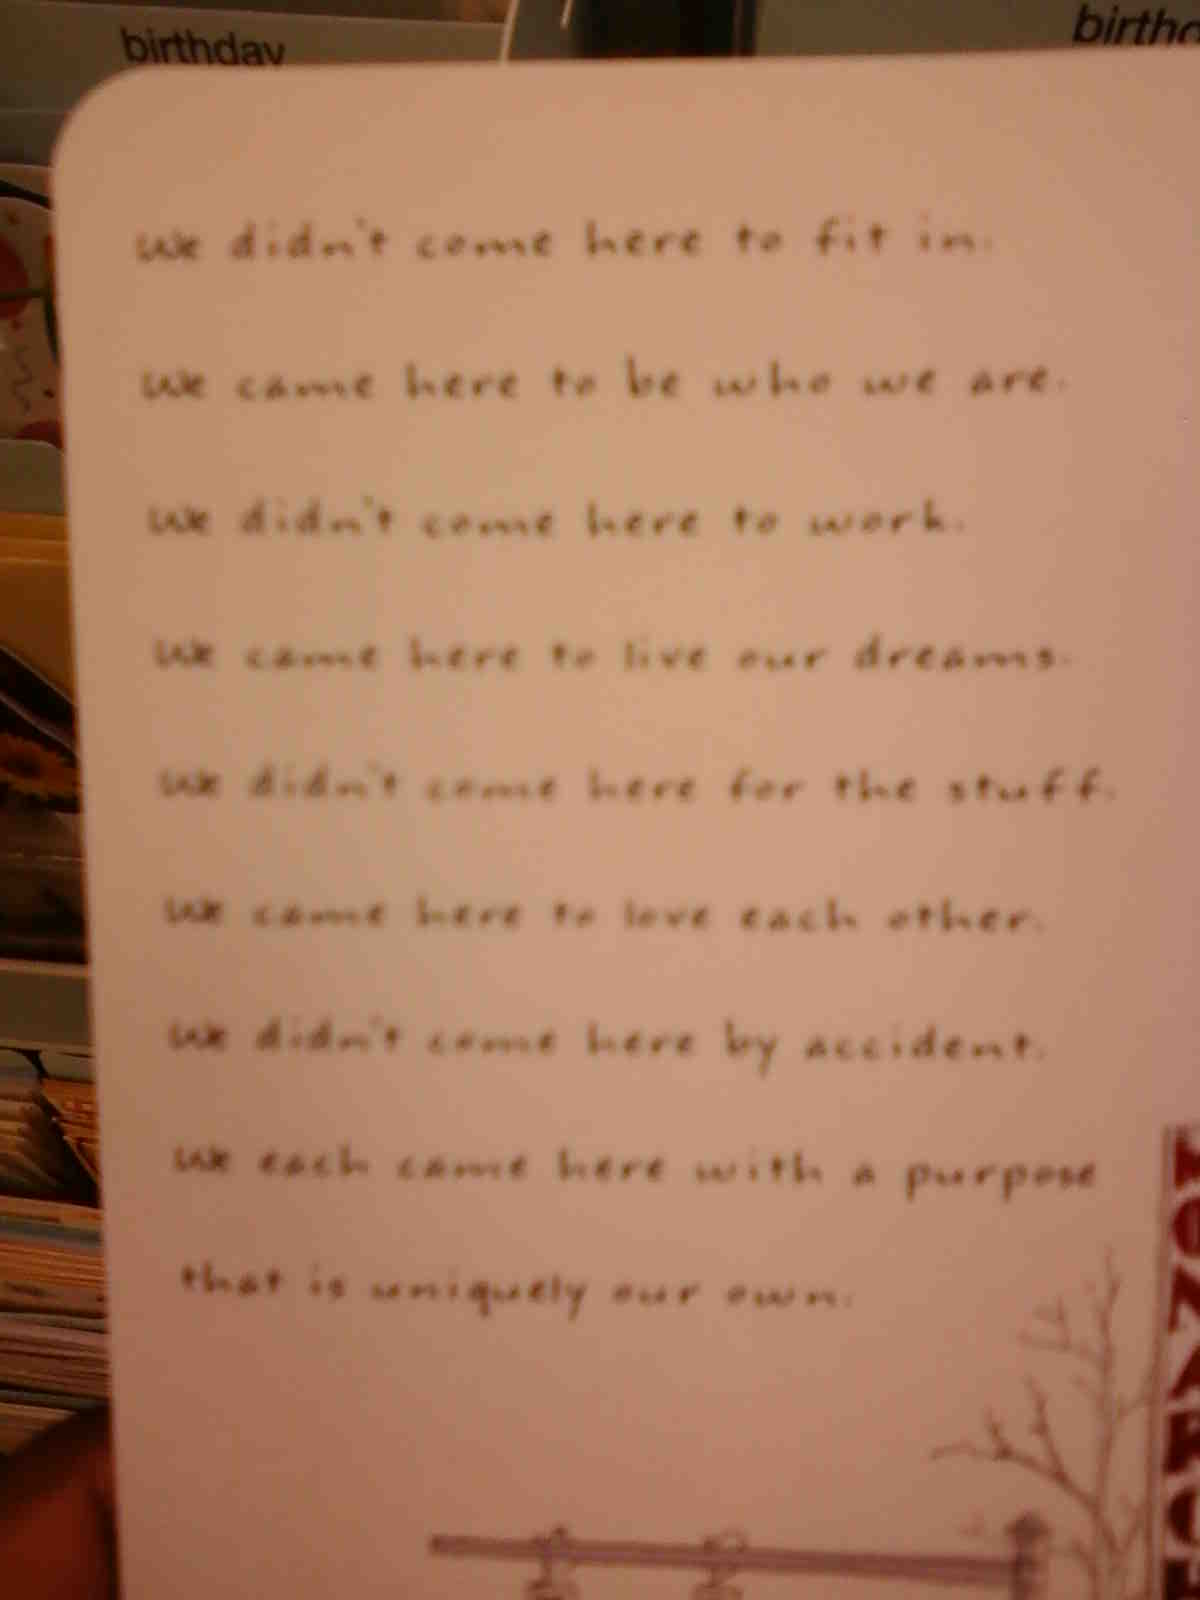 birthday
We didn't come here to fit in.
We came here to be who we are.
We didn't come here to work.
We came here to live our dreams.
We didn't come here for the stuff.
We came here to love each other.
We didn't come here by accident.
We each came here with a purpose
that is uniquely our own.